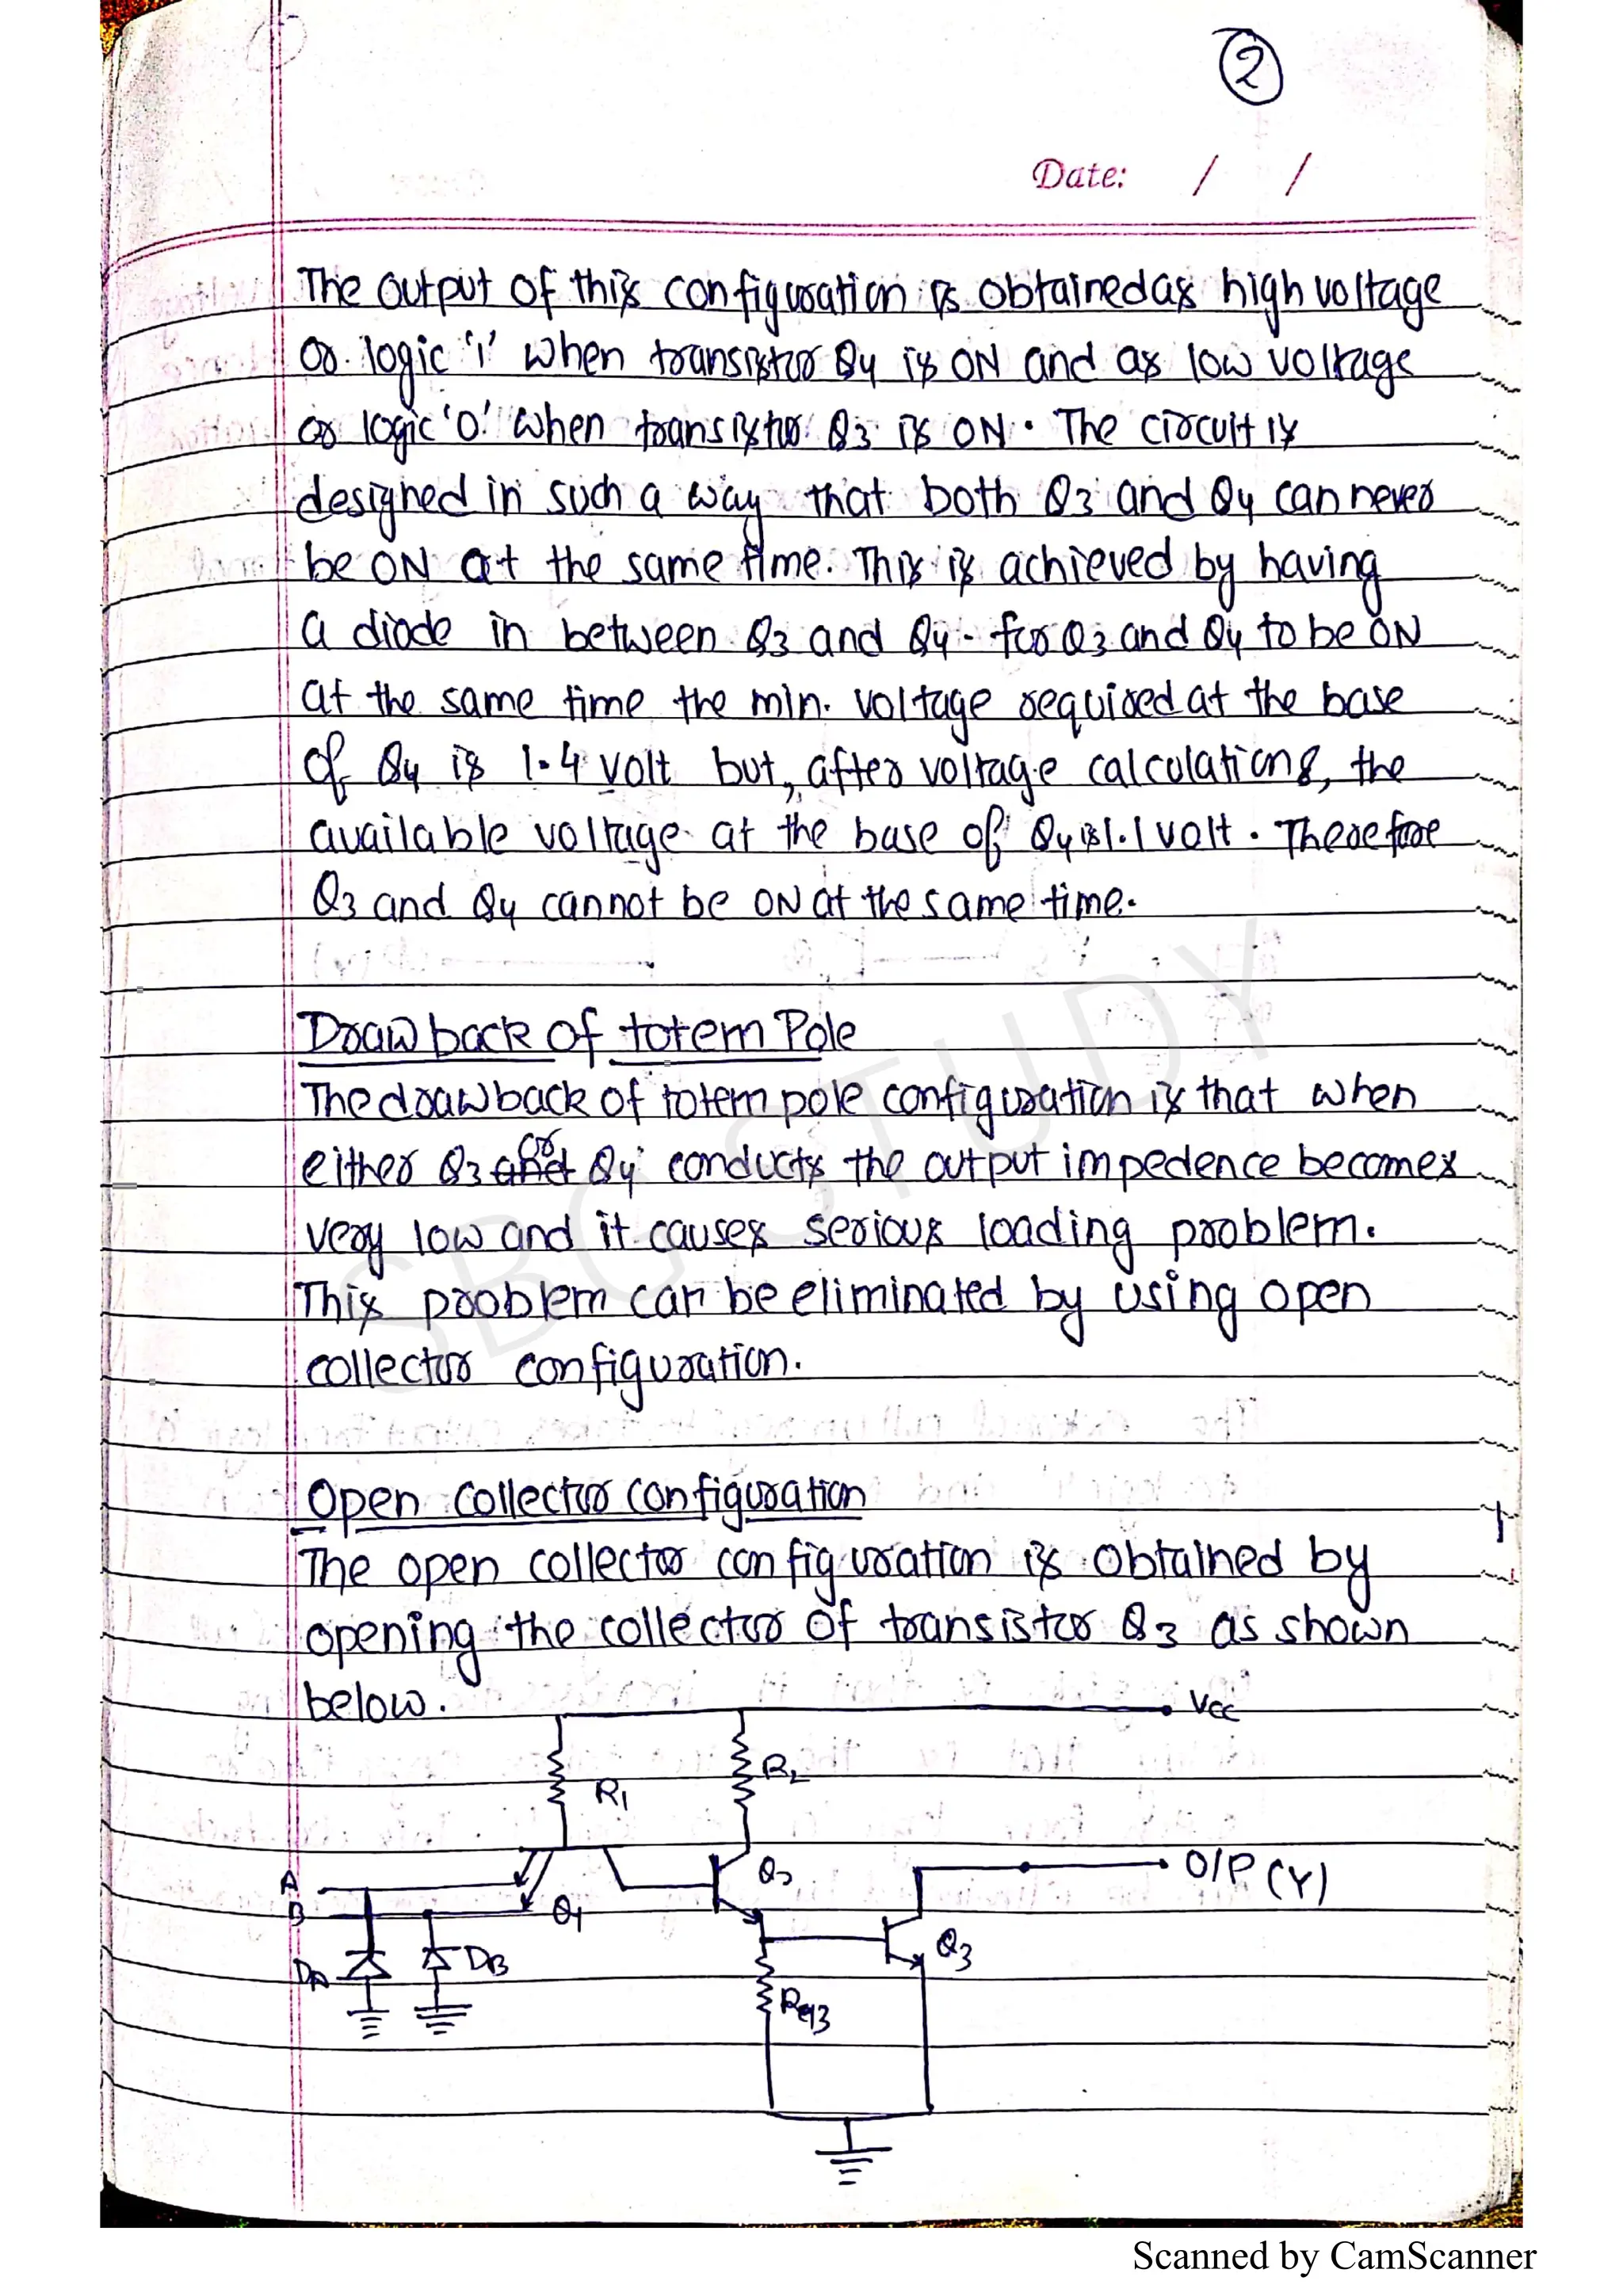 2
Date: / /
The output of this configuration is obtained as high voltage
or logic '1' when transistor Q4 is ON and as low voltage
or logic '0' when transistor Q3 is ON. The circuit is
designed in such a way that both Q3 and Q4 can never
be ON at the same time. This is achieved by having
a diode in between Q3 and Q4 - for Q3 and Q4 to be ON
at the same time the min. voltage required at the base
of Q4 is 1.4 volt but, after voltage calculations, the
available voltage at the base of Q4 is 1.1 volt. Therefore
Q3 and Q4 cannot be ON at the same time.
Drawback of totem Pole
The drawback of totem pole configuration is that when
either Q3 or Q4 conducts the output impedence becomes
very low and it causes serious loading problem.
This problem can be eliminated by using open
collector configuration.
Open collector configuration
The open collector configuration is obtained by
opening the collector of transistor Q3 as shown
below.
Vcc
R1
R2
A
B
Q1
Q2
O/P (Y)
DA
DB
Q3
Req3
SBG STUDY
Scanned by CamScanner